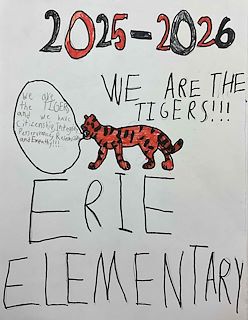 2025-2026
WE ARE THE
TIGERS!!!
we are
the TIGERS
and we have
Citizenship, Integrity
Perseverance, Resilience
and Empathy!!!
ERIE
ELEMENTARY